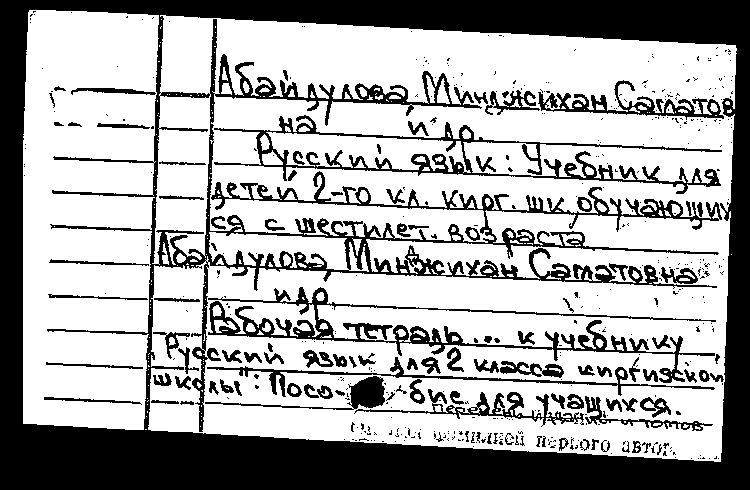 Абайдулова, Минджихан Саматов
на и др.
Русский язык: Учебник для
детей 2-го кл. кирг. шк., обучающих
ся с шестилет. возраста
Абайдулова, Минджихан Саматовна
и др.
Рабочая тетрадь... к учебнику
„Русский язык для 2 класса киргизской
школы": Посо- бие для учащихся.
Перечень изданий и томов
см. под фамилией первого автора